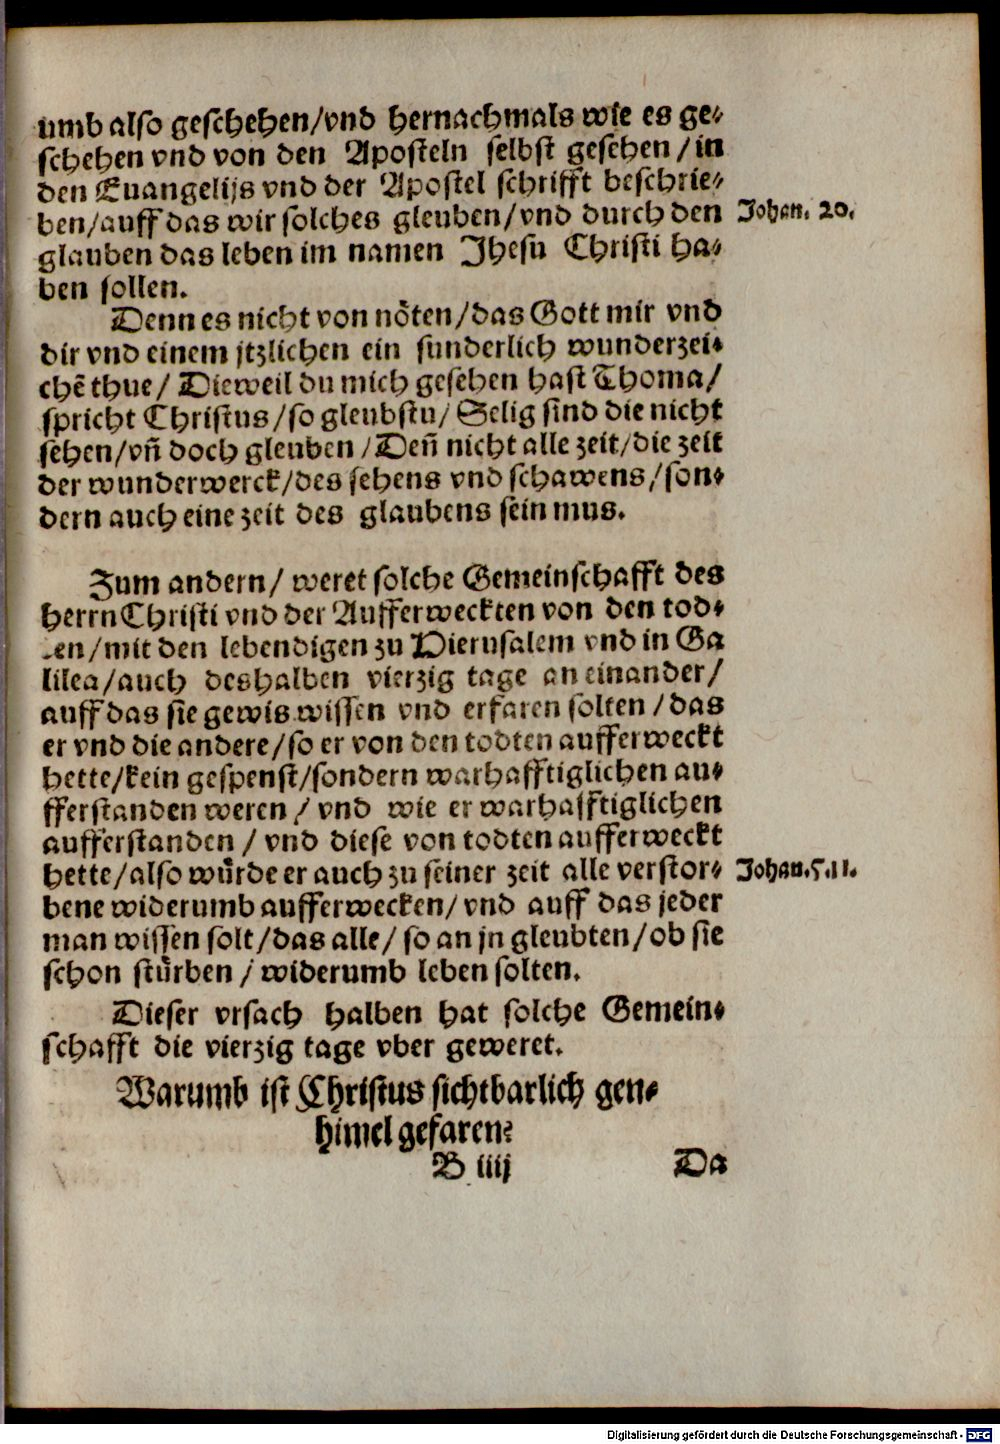 umb also geschehen/vnd hernachmals wie es ge⸗
schehen vnd von den Aposteln selbst gesehen/in
den Euangelijs vnd der Apostel schrifft beschrie⸗
ben/auff das wir solches gleuben/vnd durch den
Johan. 20.
glauben das leben im namen Jhesu Christi ha⸗
ben sollen.
Denn es nicht von nöten/das Gott mir vnd
dir vnd einem jtzlichen ein sunderlich wunderzei⸗
chẽ thue/ Dieweil du mich gesehen hast Thoma/
spricht Christus/so gleubstu/ Selig sind die nicht
sehen/vñ doch gleuben/Deñ nicht alle zeit/die zeit
der wunderwerck/des sehens vnd schawens/son⸗
dern auch eine zeit des glaubens sein mus.
Zum andern/ weret solche Gemeinschafft des
herrn Christi vnd der Aufferweckten von den tod⸗
en/mit den lebendigen zu Hierusalem vnd in Ga
lilea/auch deshalben vierzig tage an einander/
auff das sie gewis wissen vnd erfaren solten/das
er vnd die andere/so er von den todten aufferweckt
hette/kein gespenst/sondern warhafftiglichen au⸗
fferstanden weren/ vnd wie er warhafftiglichen
aufferstanden/ vnd diese von todten aufferweckt
hette/also würde er auch zu seiner zeit alle verstor⸗
Johan. 5. 11.
bene widerumb aufferwecken/ vnd auff das jeder
man wissen solt/das alle/ so an jn gleubten/ob sie
schon stürben/ widerumb leben solten.
Dieser vrsach halben hat solche Gemein⸗
schafft die vierzig tage vber geweret.
Warumb ist Christus sichtbarlich gen⸗
himel gefaren?
B iiij
Da
Digitalisierung gefördert durch die Deutsche Forschungsgemeinschaft - DFG